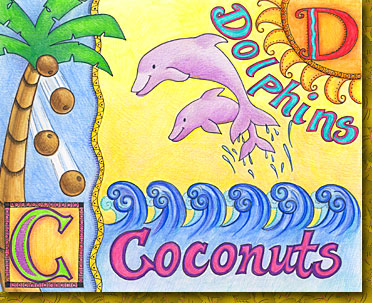 D
Dolphins
C
Coconuts